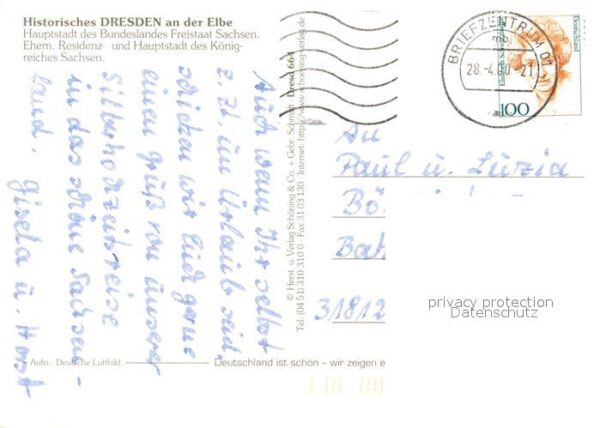 Historisches DRESDEN an der Elbe
Hauptstadt des Bundeslandes Freistaat Sachsen.
Ehem. Residenz- und Hauptstadt des König-
reiches Sachsen.
Auch wenn Ihr selbst
z. Zt. im Urlaub seid,
schicken wir Euch gerne
einen Gruß von unserer
Silberhochzeitsreise
in das schöne Sachsen-
land. Gisela u. Horst
Aufn.: Deutsche Luftbild
Deutschland ist schön – wir zeigen e
© Herst. u. Verlag Schöning & Co. + Gebr. Schmidt Dresd 664
Tel. (04 51) 310 310 0 · Fax 31 03 130 · Internet: https://www.schoening-verlag.de
BRIEFZENTRUM 01
mb
28.-4.00-21
Deutschland
100
An
Paul u. Luzia
Bö
Bat
31812
privacy protection
Datenschutz